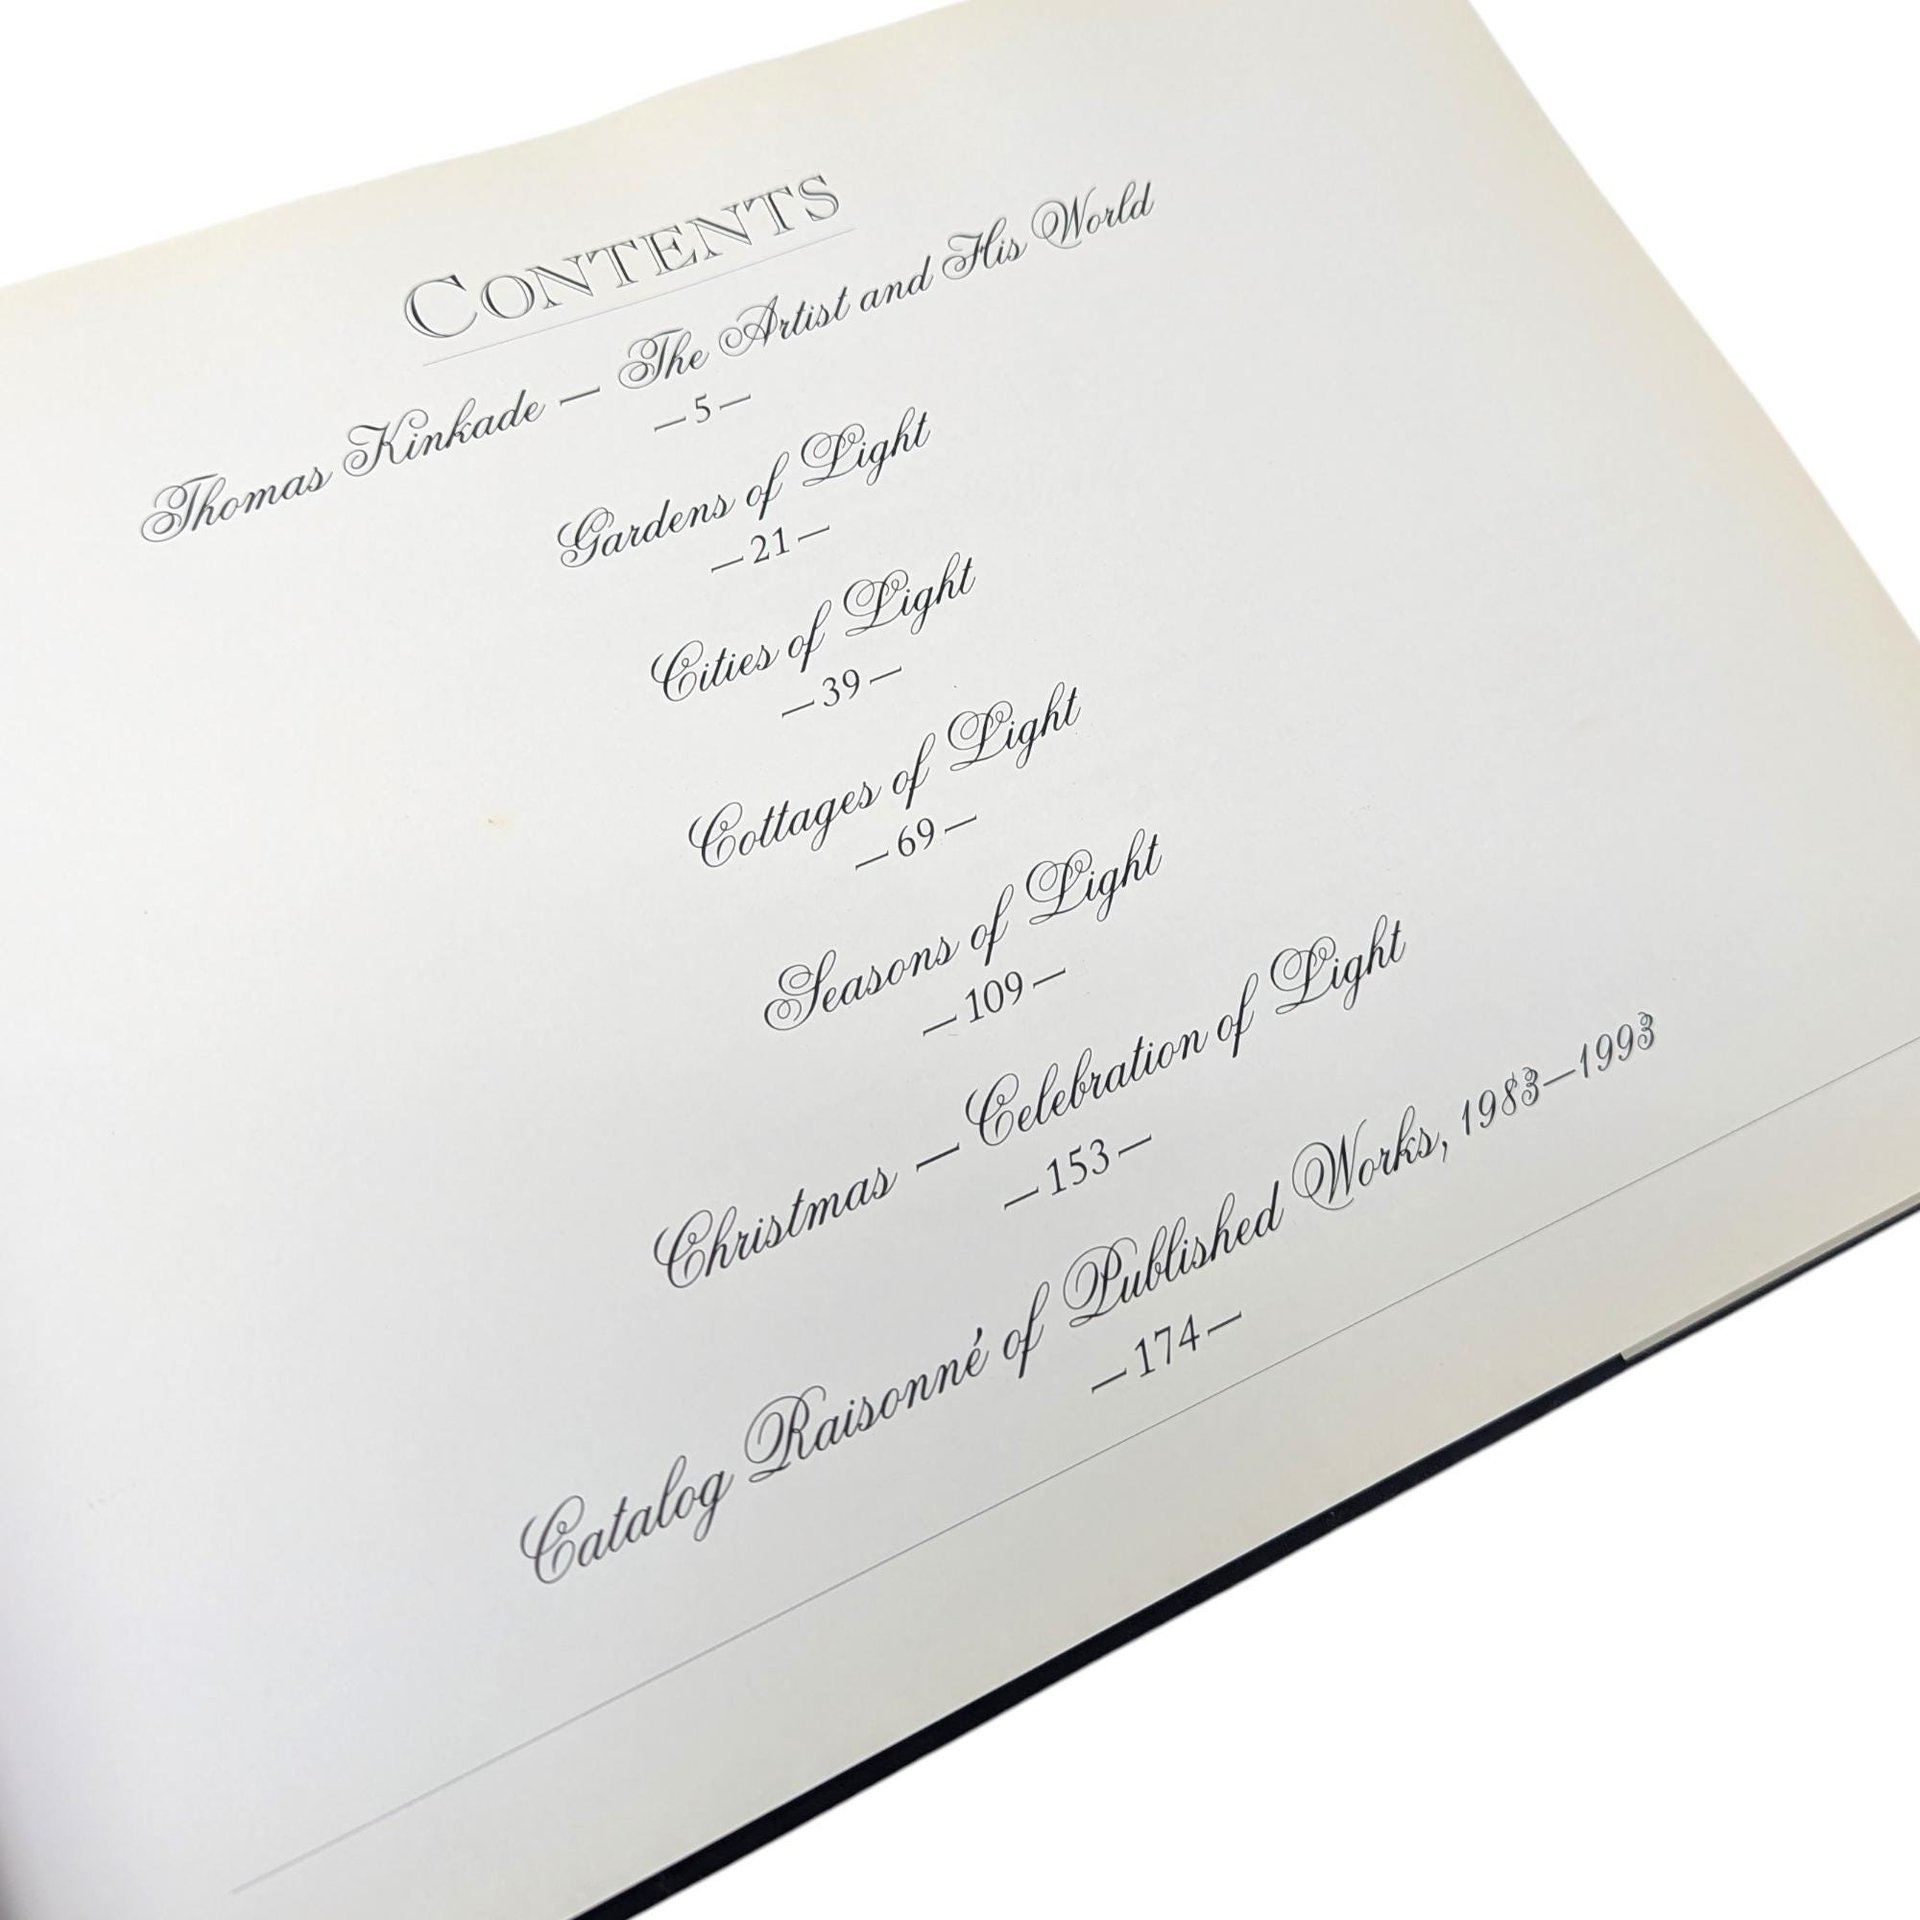 CONTENTS
Thomas Kinkade — The Artist and His World
—5—
Gardens of Light
—21—
Cities of Light
—39—
Cottages of Light
—69—
Seasons of Light
—109—
Christmas — Celebration of Light
—153—
Catalog Raisonné of Published Works, 1983—1993
—174—